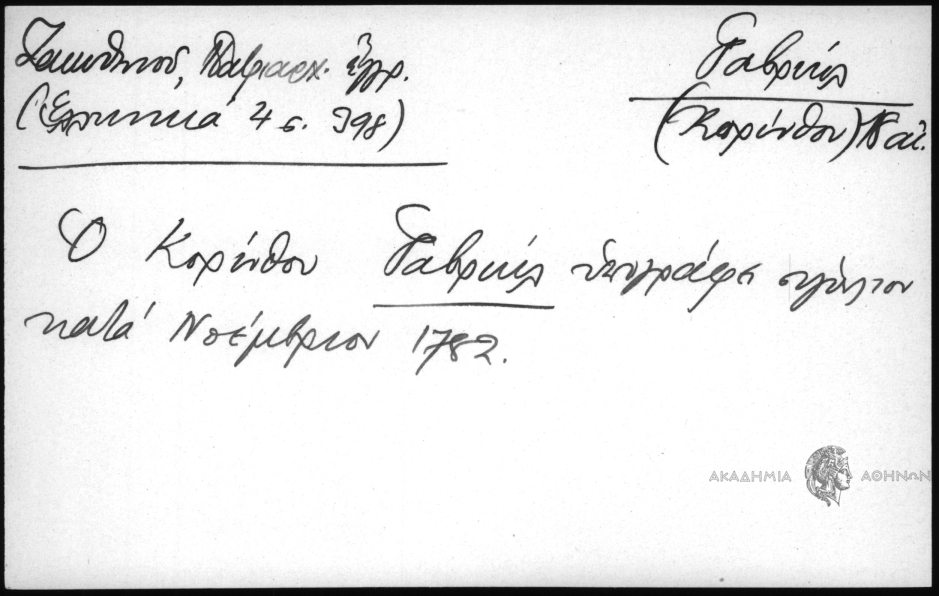 Ζακυθηνού, Πατριαρχ. έγγρ.
(Ελληνικά 4 σ. 398)
Γαβριήλ
(Κορίνθου)
Ὁ Κορίνθου Γαβριήλ ὑπογράφει σιγίλλιον
κατά Νοέμβριον 1782.
ΑΚΑΔΗΜΙΑ ΑΘΗΝΩΝ